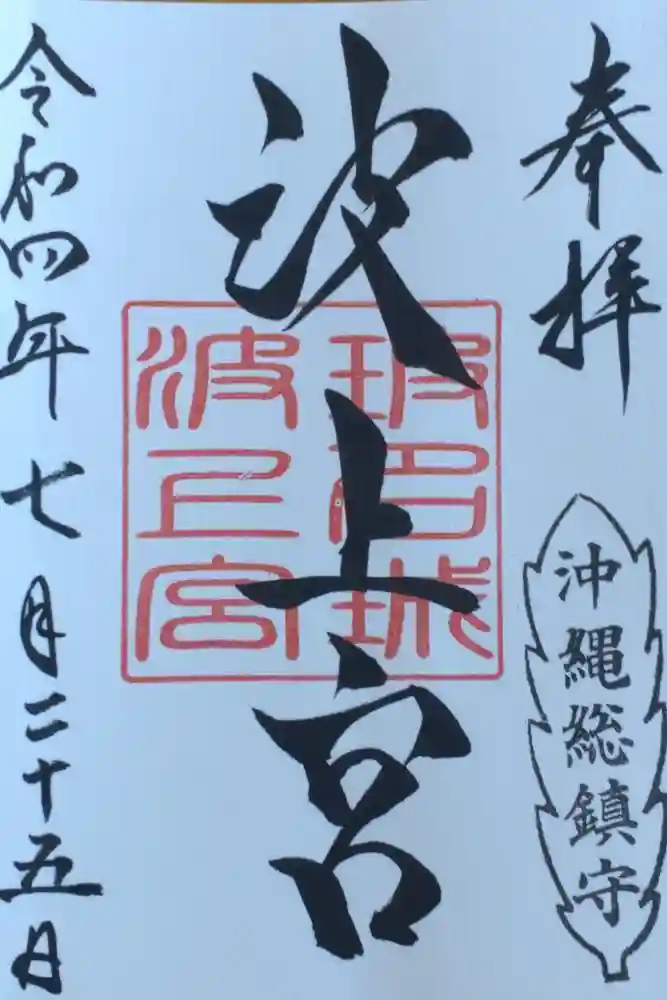 奉拝
沖縄総鎮守
波上宮
波上宮
令和四年七月二十五日